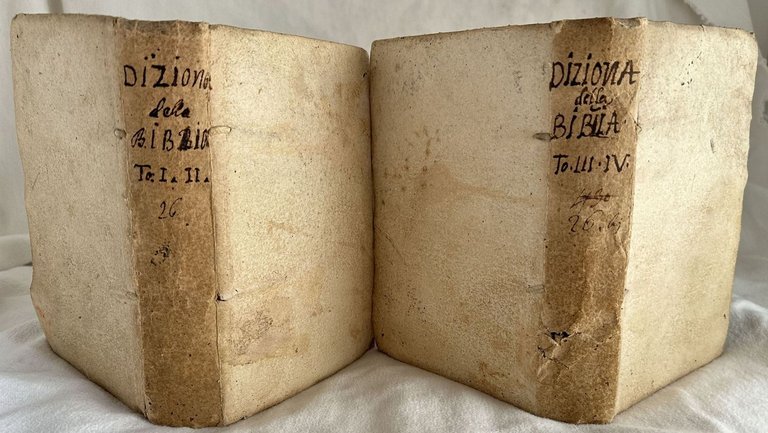 DIZIONA
della
BIBLIA
To. I. II.
26
DIZIONA
della
BIBLIA
To. III. IV.
26.